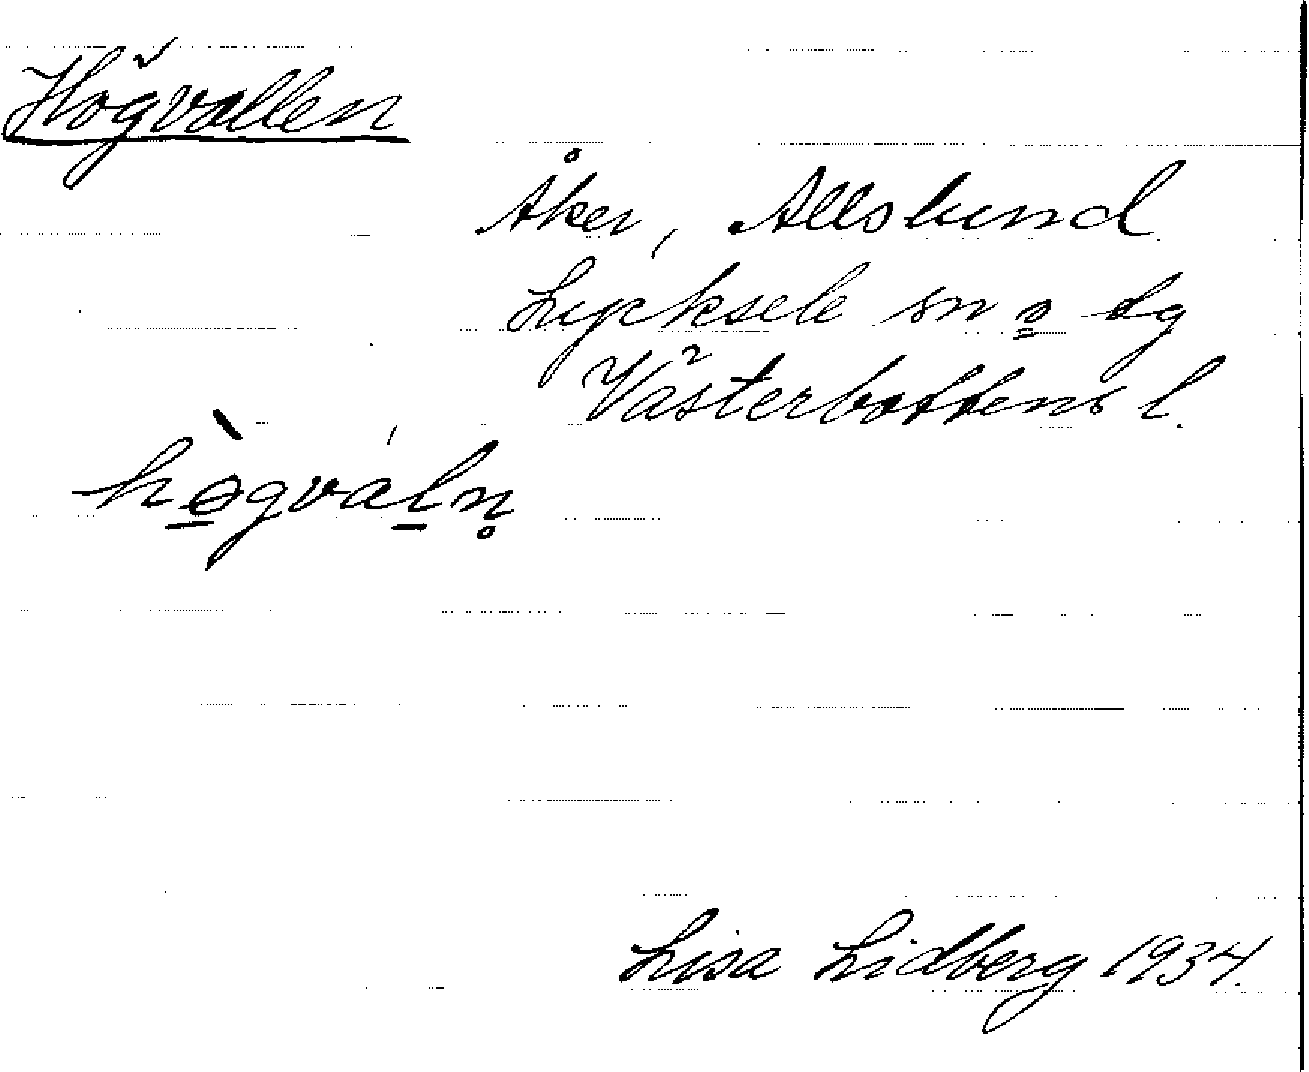 Högvallen
Åker, Allslund
Lycksele sn o dg
Västerbottens l.
hògválṇ
Lisa Lidberg 1934.